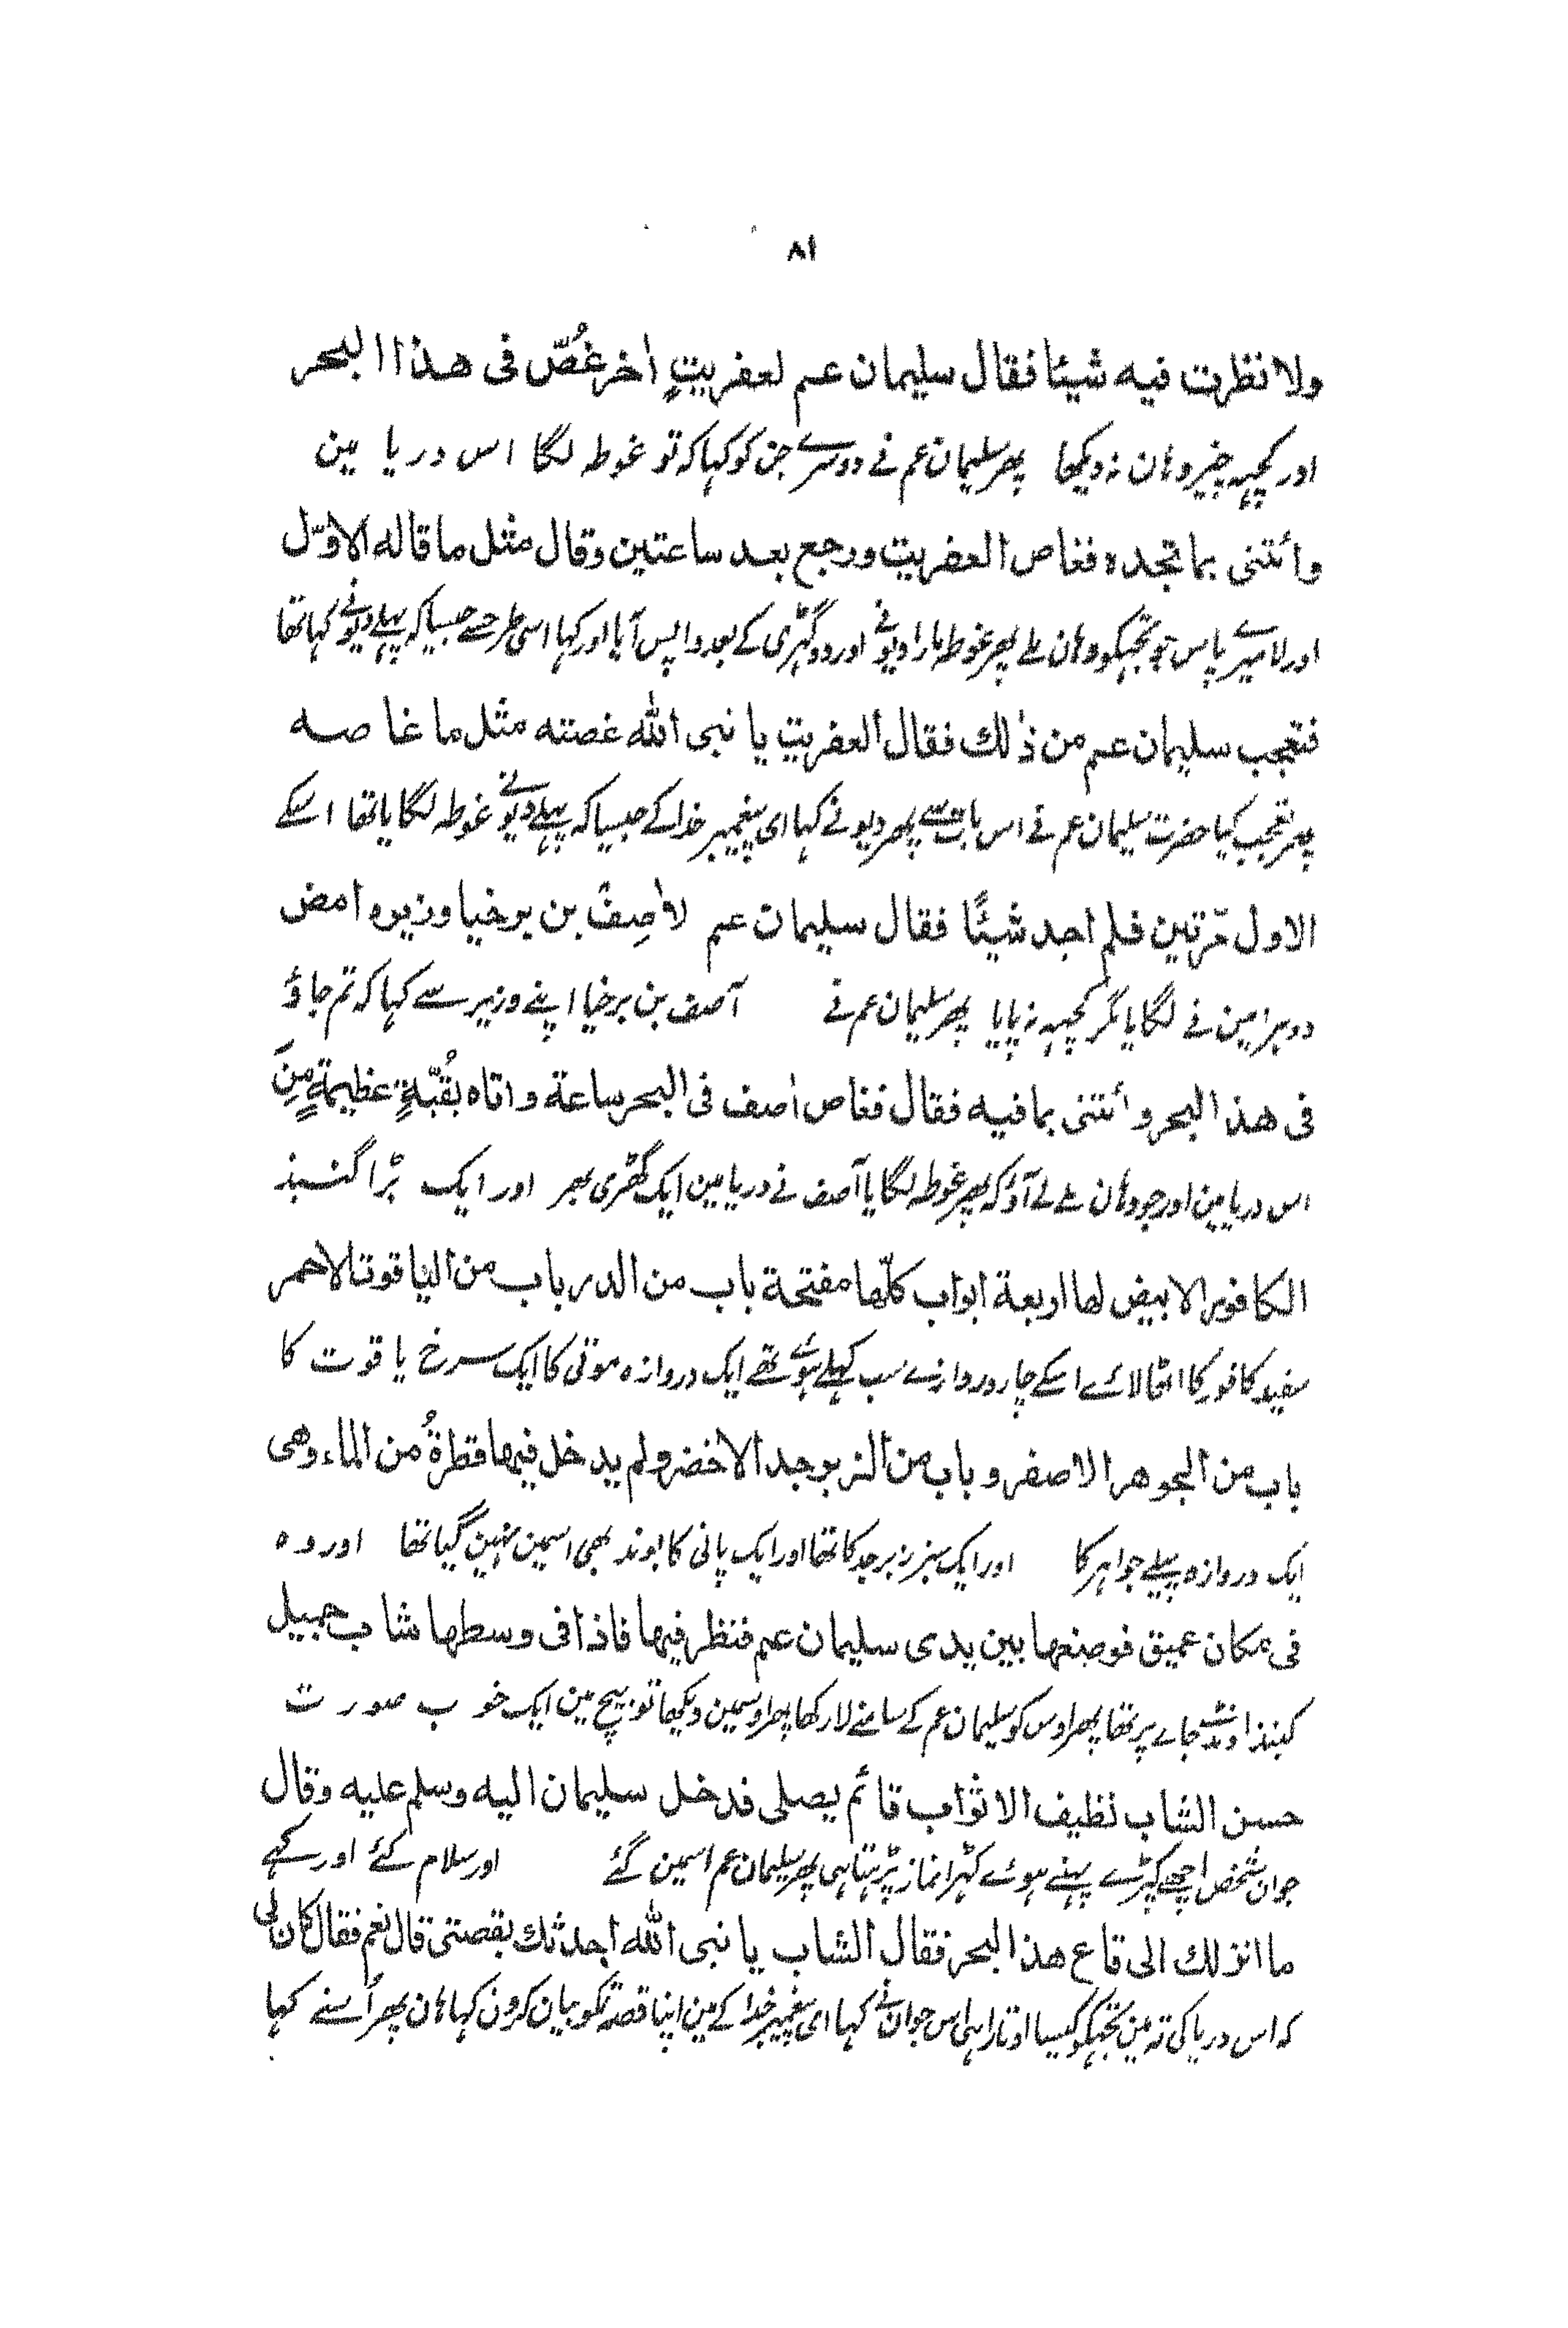 ٨١
ولا نظرت فيه شيئا فقال سليمان عم لعفريتٍ اٰخر غُصّ فى هذا البحر
اور کچہہ چیز وہان نہ دیکھا پھر سلیمان عم نے دوسرے جن کو کہا کہ تو غوطہ لگا اس دریا مین
وائتنى بما تجده فغاص العفريت ورجع بعد ساعتين وقال مثل ما قاله الاوّل
اور لا میرے پاس جو تجہکو وہان ملے پھر غوطہ مارا دیو نے اور دو گہڑی کے بعد واپس آیا اور کہا اسی طرحسے جیسا کہ پہلے دیو نے کہا تھا
فتعجب سليمان عم من ذٰلك فقال العفريت يا نبى الله غصته مثل ما غاصه
پھر تعجب کیا حضرت سلیمان عم نے اس بات سے پھر دیو نے کہا ای پیغمبر خدا کے جیسا کہ پہلے دیو نے غوطہ لگایا تھا اسکے
الاول مّرتين فلم اجد شيئًا فقال سليمان عم لاٰصِفَ بن برخيا وزيره امض
دوہرا مین نے لگایا مگر کچہہ نہ پایا پھر سلیمان عم نے آصف بن برخیا اپنے وزیر سے کہا کہ تم جاؤ
فى هذا البحر وائتنى بما فيه فقال فغاص اٰصف فى البحر ساعة واتاه بقُبّةٍ عظيمةٍ مِنَ
اس دریا مین اور جو وہان ملے لے آؤ کہ پھر غوطہ لگایا آصف نے دریا مین ایک گھڑی بھر اور ایک بڑا گنبذ
الكافور الابيض لها اربعة ابواب كلّها مفتحة باب من الدر باب من الياقوت الاحمر
سفید کافور کا اٹھا لائے اسکے چار دروازے سب کہلے ہوئے تھے ایک دروازہ موتی کا ایک سرخ یاقوت کا
باب من الجوهر الاصفر و باب من الزبوجد الاخضر ولم يدخل فيها قطرةُ من الماء وهى
ایک دروازہ پیلے جواہر کا اور ایک سبز زبرجد کا تھا اور ایک پانی کا بوند بھی اسمین نہین گیا تھا اور وہ
فى مكان عميق فوضعها بين يدى سليمان عم فنظر فيها فاذا فى وسطها شاب جميل
گنبذ اونڈے جاے پر تھا پھر اوس کو سلیمان عم کے سامنے لا رکھا پھر اوسمین دیکھا تو بیچ مین ایک خوب صورت
حسن الشاب نظيف الاثواب قائم يصلى فدخل سليمان اليه وسلم عليه وقال
جوان شخص اچھے کپڑے پہنے ہوئے کہڑا نماز پڑہتا ہی پھر سلیمان عم اسمین گئے اور سلام کئے اور کہے
ما انزلك الى قاع هذا البحر فقال الشاب يا نبى الله احدثك بقصتى قال نعم فقال كان لى
کہ اس دریا کی تہ مین تجہکو کیسا اوتارا ہی اس جوان نے کہا ای پیغمبر خدا کے مین اپنا قصہ تمکو بیان کرون کہا ہان پھر اُسنے کہا